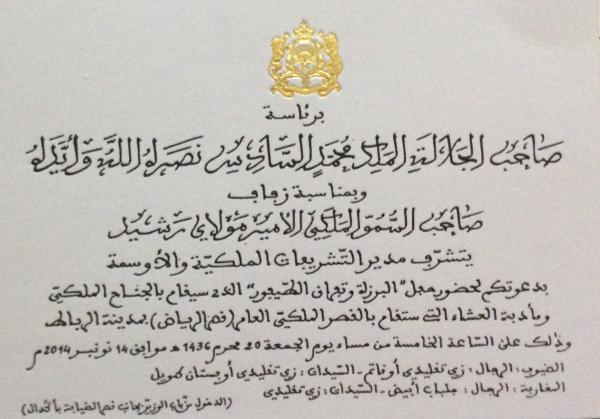 برئاسة
صاحب الجلالة الملك محمد السادس نصره الله وأيده
وبمناسبة زفاف
صاحب السمو الملكي الأمير مولاي رشيد
يتشرف مدير التشريفات الملكية والأوسمة
بدعوتكم لحضور حفل "البرزة وتقدمان الطيفور" الذي سيقام بالجناح الملكي
ومأدبة العشاء التي ستقام بالقصر الملكي العام (قصر الرياض) بمدينة الرباط
وذلك على الساعة الخامسة من مساء يوم الجمعة 20 محرم 1436 هـ موافق 14 نونبر 2014 م
الضيوف : الرجال : زي تقليدي أو قاتم - السيدات : زي تقليدي أو فستان طويل
المغاربة : الرجال : جلباب أبيض - السيدات : زي تقليدي
(الدخول من باب الوزير بجانب قصر الضيافة بأكدال)